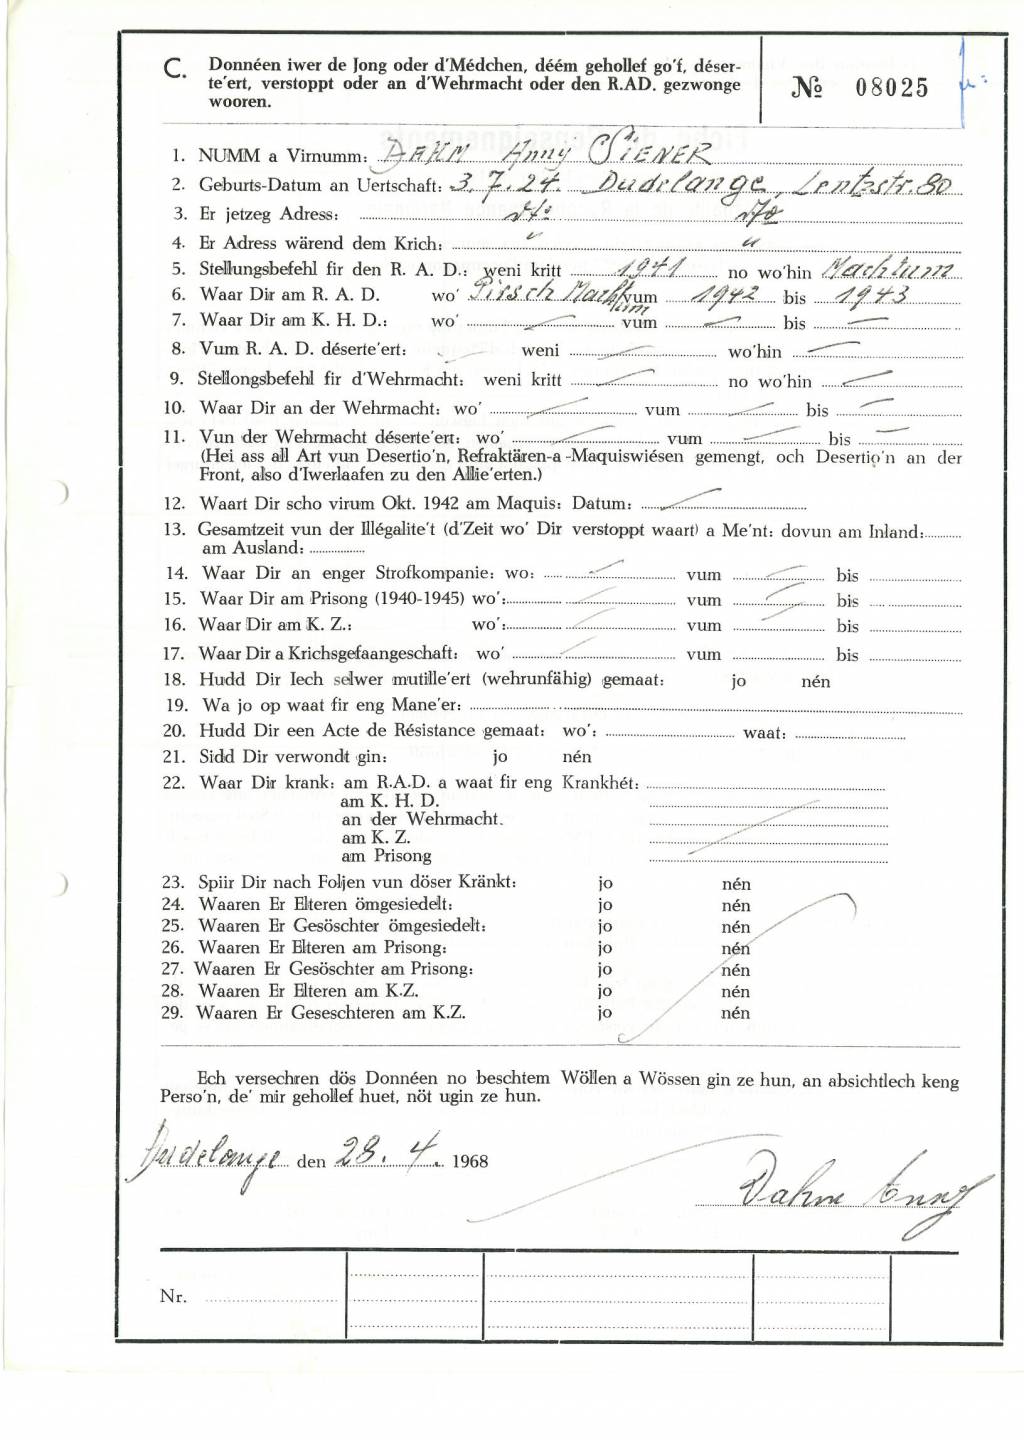 C. Donnéen iwer de Jong oder d'Médchen, déém gehollef go'f, déser-
te'ert, verstoppt oder an d'Wehrmacht oder den R.AD. gezwonge
wooren.
№ 08025
1. NUMM a Virnumm: DAHM Anny SIENER
2. Geburts-Datum an Uertschaft: 3.7.24. Dudelange, Lentzstr. 80
3. Er jetzeg Adress: dto dto
4. Er Adress wärend dem Krich: " "
5. Stellungsbefehl fir den R. A. D.: weni kritt 1941 no wo'hin Machtum
6. Waar Dir am R. A. D. wo' Pirsch Machtum vum 1942 bis 1943
7. Waar Dir am K. H. D.: wo' — vum — bis —
8. Vum R. A. D. déserte'ert: — weni — wo'hin —
9. Stellongsbefehl fir d'Wehrmacht: weni kritt — no wo'hin —
10. Waar Dir an der Wehrmacht: wo' — vum — bis —
11. Vun der Wehrmacht déserte'ert: wo' — vum — bis —
(Hei ass all Art vun Desertio'n, Refraktären-a-Maquiswiésen gemengt, och Desertio'n an der
Front, also d'Iwerlaafen zu den Allie'erten.)
12. Waart Dir scho virum Okt. 1942 am Maquis: Datum: —
13. Gesamtzeit vun der Illégalite't (d'Zeit wo' Dir verstoppt waart) a Me'nt: dovun am Inland:
am Ausland:
14. Waar Dir an enger Strofkompanie: wo: — vum — bis
15. Waar Dir am Prisong (1940-1945) wo': — vum — bis
16. Waar Dir am K. Z.: wo': — vum — bis
17. Waar Dir a Krichsgefaangeschaft: wo' — vum bis
18. Hudd Dir Iech selwer mutille'ert (wehrunfähig) gemaat: jo nén
19. Wa jo op waat fir eng Mane'er:
20. Hudd Dir een Acte de Résistance gemaat: wo': waat:
21. Sidd Dir verwondt gin: jo nén
22. Waar Dir krank: am R.A.D. a waat fir eng Krankhét:
am K. H. D.
an der Wehrmacht.
am K. Z.
am Prisong
23. Spiir Dir nach Foljen vun döser Kränkt: jo nén
24. Waaren Er Elteren ömgesiedelt: jo nén
25. Waaren Er Gesöschter ömgesiedelt: jo nén
26. Waaren Er Elteren am Prisong: jo nén
27. Waaren Er Gesöschter am Prisong: jo nén
28. Waaren Er Elteren am K.Z. jo nén
29. Waaren Er Geseschteren am K.Z. jo nén
Ech versechren dös Donnéen no beschtem Wöllen a Wössen gin ze hun, an absichtlech keng
Perso'n, de' mir gehollef huet, nöt ugin ze hun.
Dudelange den 28. 4. 1968
Dahm Anny
Nr.